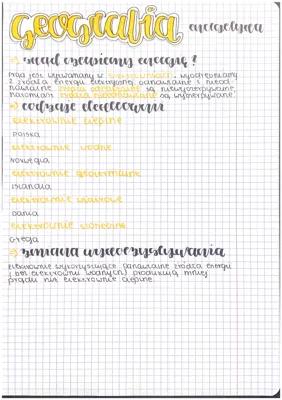 Geografia energetyka
→ skąd czerpiemy energię?
Prąd jest wytwarzany w elektrowniach, wyodrębniamy
2 źródła energii elektrycznej odnawialne i nieod-
nawialne źródła odnawialne są niewyczerpywalne,
natomiast źródła nieodnawialne są wyczerpywalne.
→ rodzaje elektrowni
elektrownie cieplne
Polska
elektrownie wodne
Norwegia
elektrownie geotermalne
Islandia
elektrownie wiatrowe
Dania
elektrownie słoneczne
Grecja
→ zmiana wykorzystywania
elektrownie wykorzystujące odnawialne źródła energii
(bez elektrowni wodnych) produkują mniej
prądu niż elektrownie cieplne.